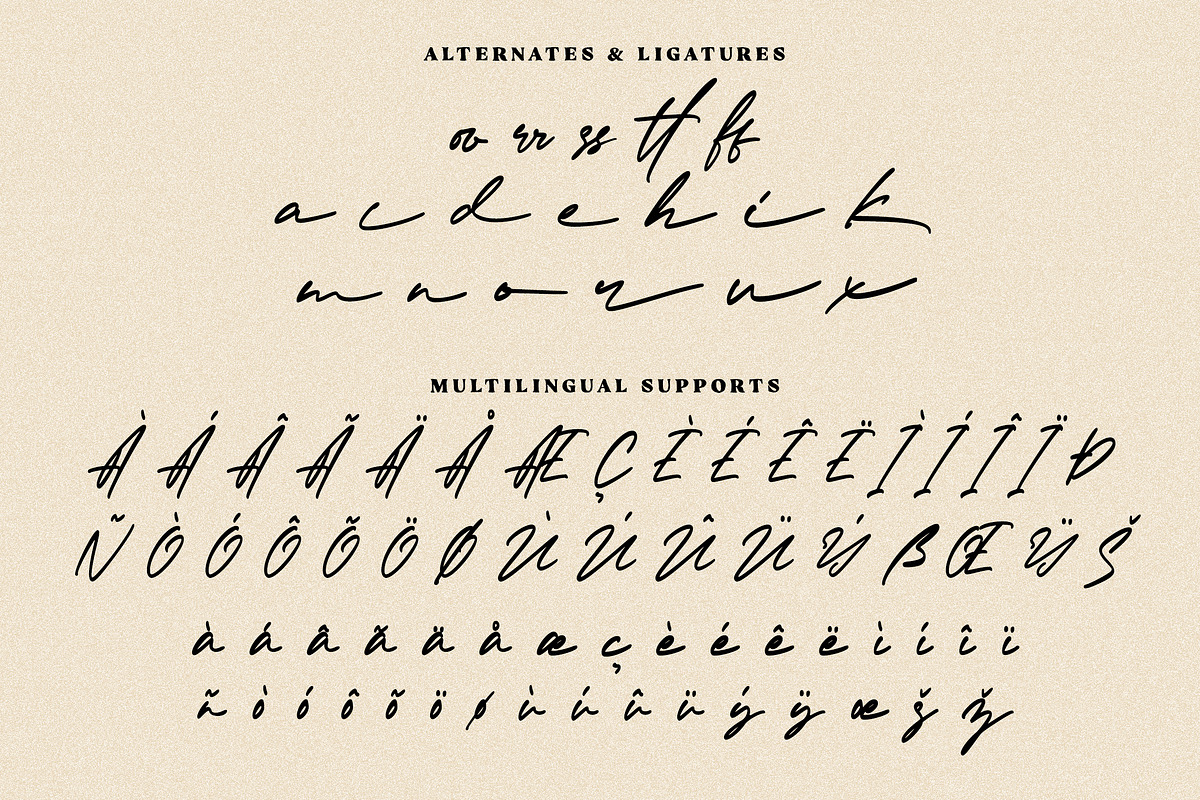 ALTERNATES & LIGATURES
oo rr ss tt ff
a c d e h i k
m n o r u x
MULTILINGUAL SUPPORTS
À Á Â Ã Ä Å Æ Ç È É Ê Ë Ì Í Î Ï Ð
Ñ Ò Ó Ô Õ Ö Ø Ù Ú Û Ü Ý ß Œ Ÿ Š
à á â ã ä å æ ç è é ê ë ì í î ï
ñ ò ó ô õ ö ø ù ú û ü ý ÿ œ š ž